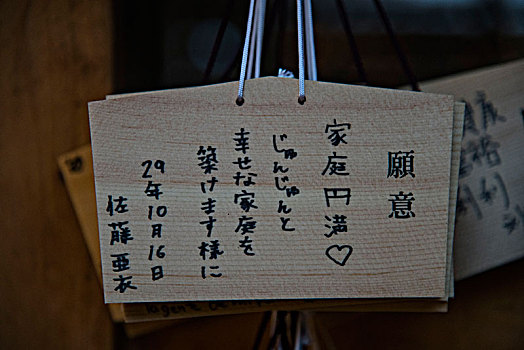 願意
家庭円満♡
じゅんじゅんと
幸せな家庭を
築けます様に
29年10月16日
佐藤亜衣